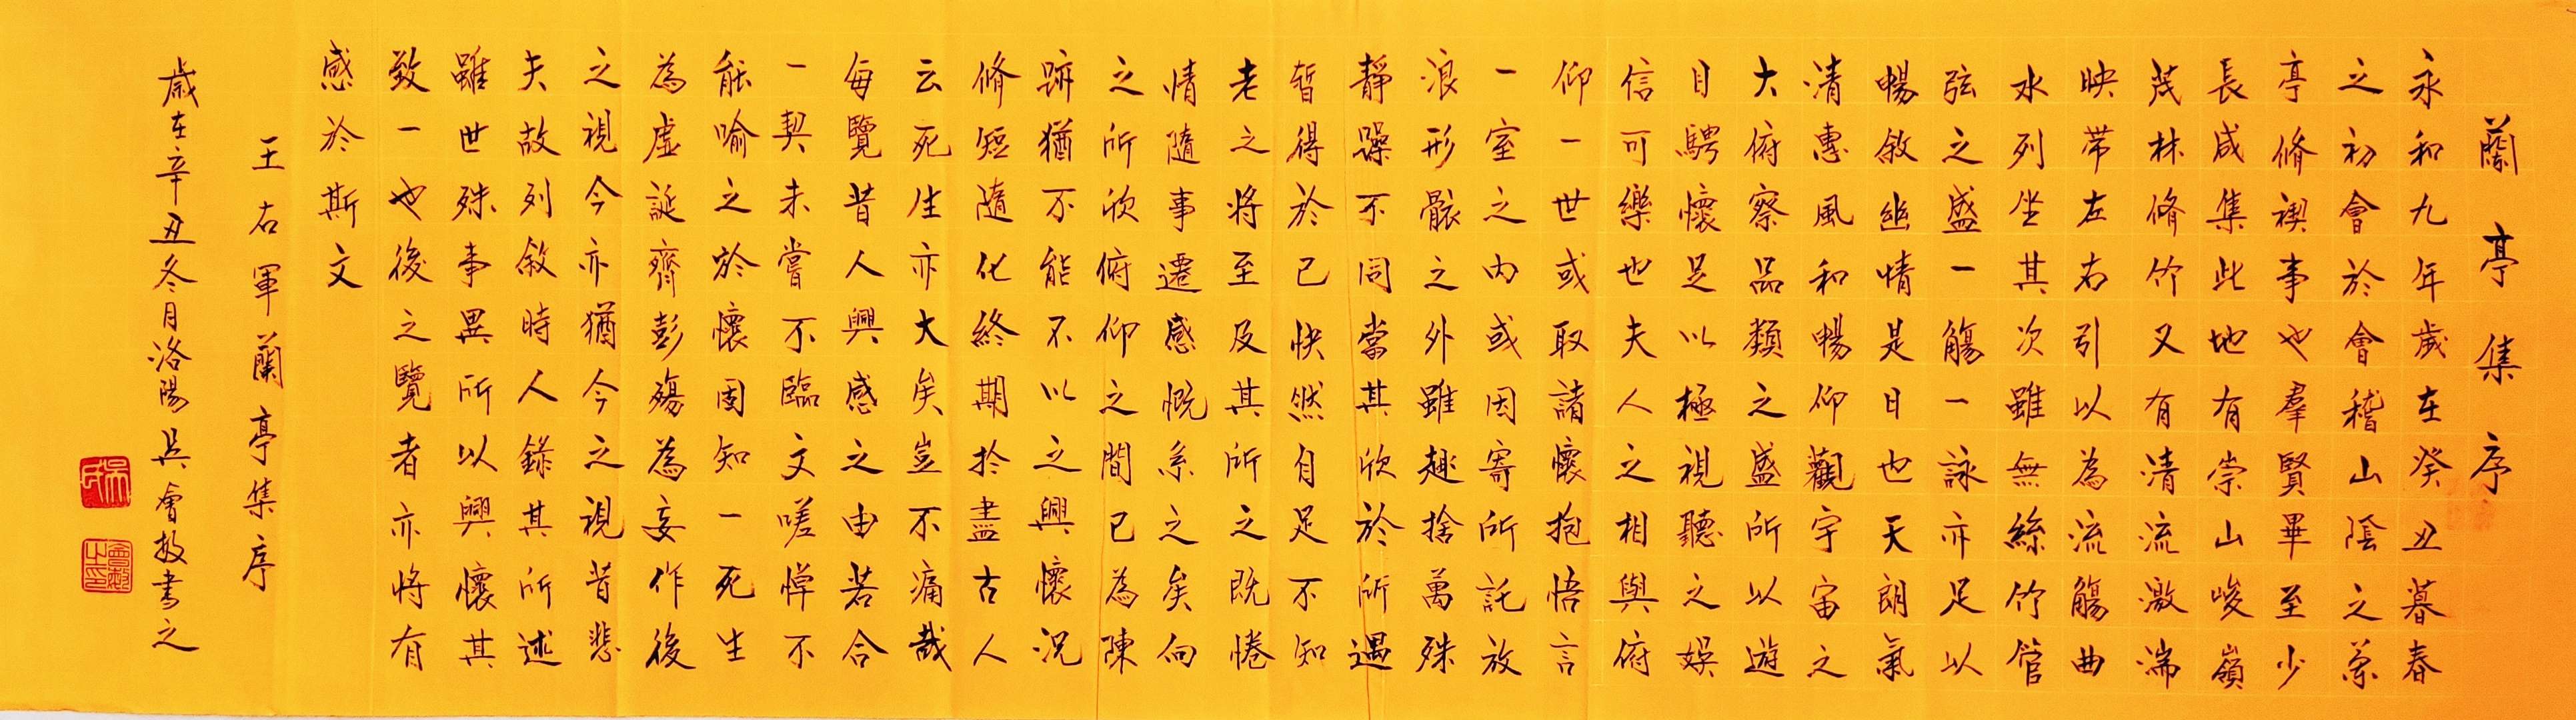 蘭亭集序
永和九年歲在癸丑暮春
之初會於會稽山陰之蘭
亭脩禊事也羣賢畢至少
長咸集此地有崇山峻嶺
茂林脩竹又有清流激湍
映帶左右引以為流觴曲
水列坐其次雖無絲竹管
弦之盛一觴一詠亦足以
暢敘幽情是日也天朗氣
清惠風和暢仰觀宇宙之
大俯察品類之盛所以遊
目騁懷足以極視聽之娛
信可樂也夫人之相與俯
仰一世或取諸懷抱悟言
一室之內或因寄所託放
浪形骸之外雖趣捨萬殊
靜躁不同當其欣於所遇
暫得於己快然自足不知
老之將至及其所之既惓
情隨事遷感慨系之矣向
之所欣俯仰之間已為陳
跡猶不能不以之興懷況
脩短隨化終期於盡古人
云死生亦大矣豈不痛哉
每覽昔人興感之由若合
一契未嘗不臨文嗟悼不
能喻之於懷固知一死生
為虛誕齊彭殤為妄作後
之視今亦猶今之視昔悲
夫故列敘時人錄其所述
雖世殊事異所以興懷其
致一也後之覽者亦將有
感於斯文
王右軍蘭亭集序
歲在辛丑冬月洛陽吳會書之
吳氏